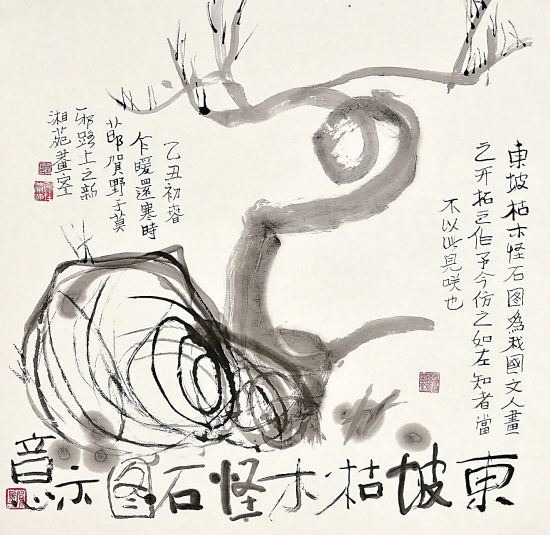 東坡枯木怪石图为我國文人畫
之开拓之作予今仿之如左知者當
不以此見咲也
乙丑初春
乍暖還寒時
節賀野于莫
邪路上之新
湘苑畫室
東坡枯木怪石图示意